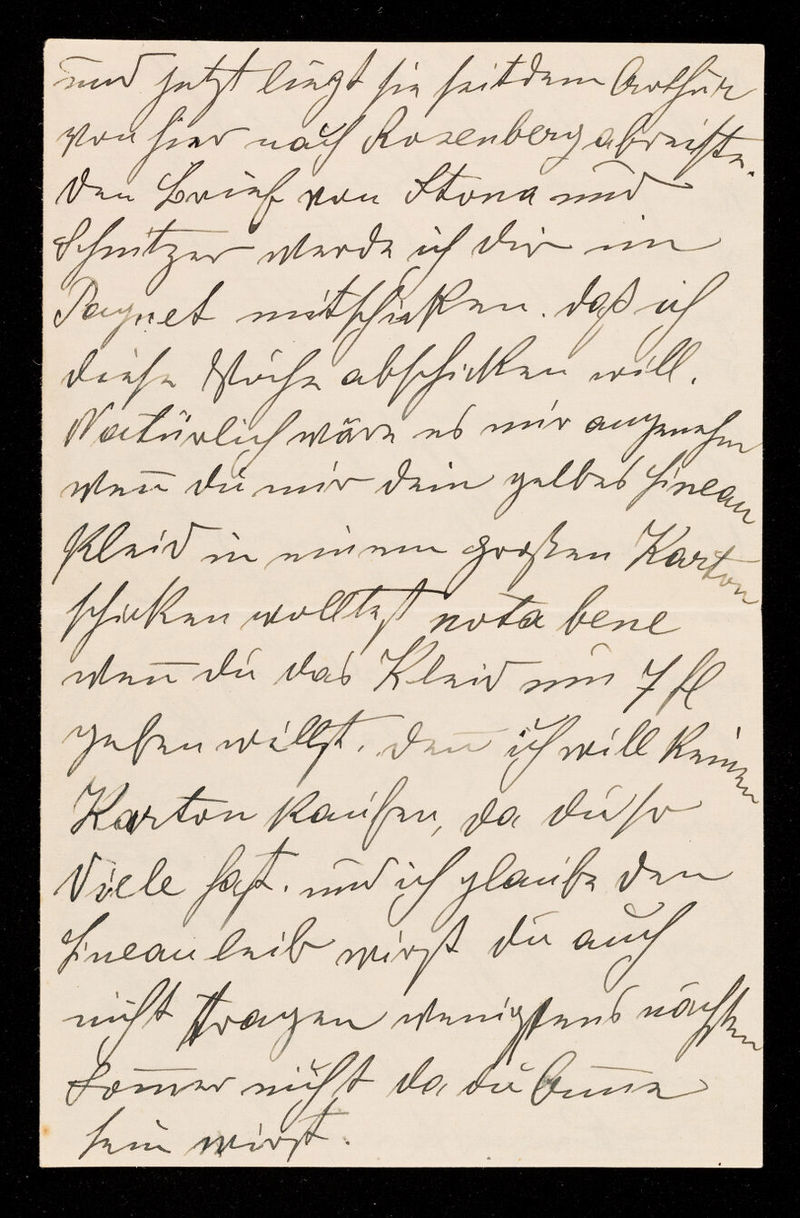 und jetzt liegt sie seitdem Arthur
von hier nach Rosenberg abreiste.
den Brief von Stona und
Schnitzer werde ich dir im
Paquet mitschicken. daß ich
diese Woche abschicken will.
Natürlich wäre es mir angenehm
weñ du mir dein gelbes
Kleid in einem großen Karton
schicken wolltest nota bene
weñ du das Kleid um 7 fl
geben willst. deñ ich will keinen
Karton kaufen, da du so
Viele hast. und ich glaube den
leib wirst du auch
nicht tragen wenigstens nächsten
Som̃er nicht da du
sein wirst.